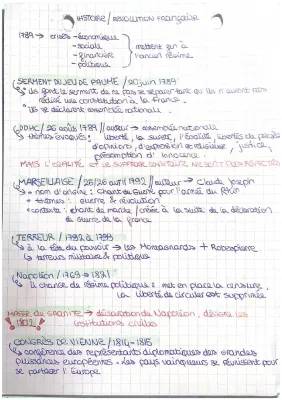 HISTOIRE / RÉVOLUTION FRANÇAISE
1789 → crises - économique
- sociale
- financière
- politique
mettent fin à
l'ancien régime
SERMENT DU JEU DE PAUME / 20 juin 1789
ils font le serment de ne pas se séparer tant qu'ils n'auront pas
rédigé une constitution à la France.
ils se déclarent assemblée nationale.
DDHC / 26 août 1789 // auteur → assemblée nationale
thèmes évoqués : liberté, la sureté, l'égalité, libertés de pensée
d'opinions, d'expression et religieuse, justice,
présomption d'innocence.
MAIS L'ÉGALITÉ ET LE SUFFRAGE UNIVERSEL NE SONT PAS RESPECTÉS
MARSEILLAISE / 25/26 avril 1792 // auteur → Claude Joseph
+ nom d'origine : Chant de Guerre pour l'armée du Rhin
+ thèmes : guerre & révolution
+ contexte : chant de marche / créée à la suite de la déclaration
de guerre de la France
TERREUR / 1792 à 1794
à la tête du pouvoir → les Montagnards + Robespierre
terreurs militaire & politique
Napoléon / 1769 → 1821
il change de régime politique : met en place la censure.
la liberté de circuler est supprimée
MASSE DE GRANITE → déclaration de Napoléon, désigne les
institutions civiles
CONGRÈS DE VIENNE / 1814-1815
conférence des représentants diplomatiques des grandes
puissances européennes. Les pays vainqueurs se réunissent pour
se partager l'Europe.